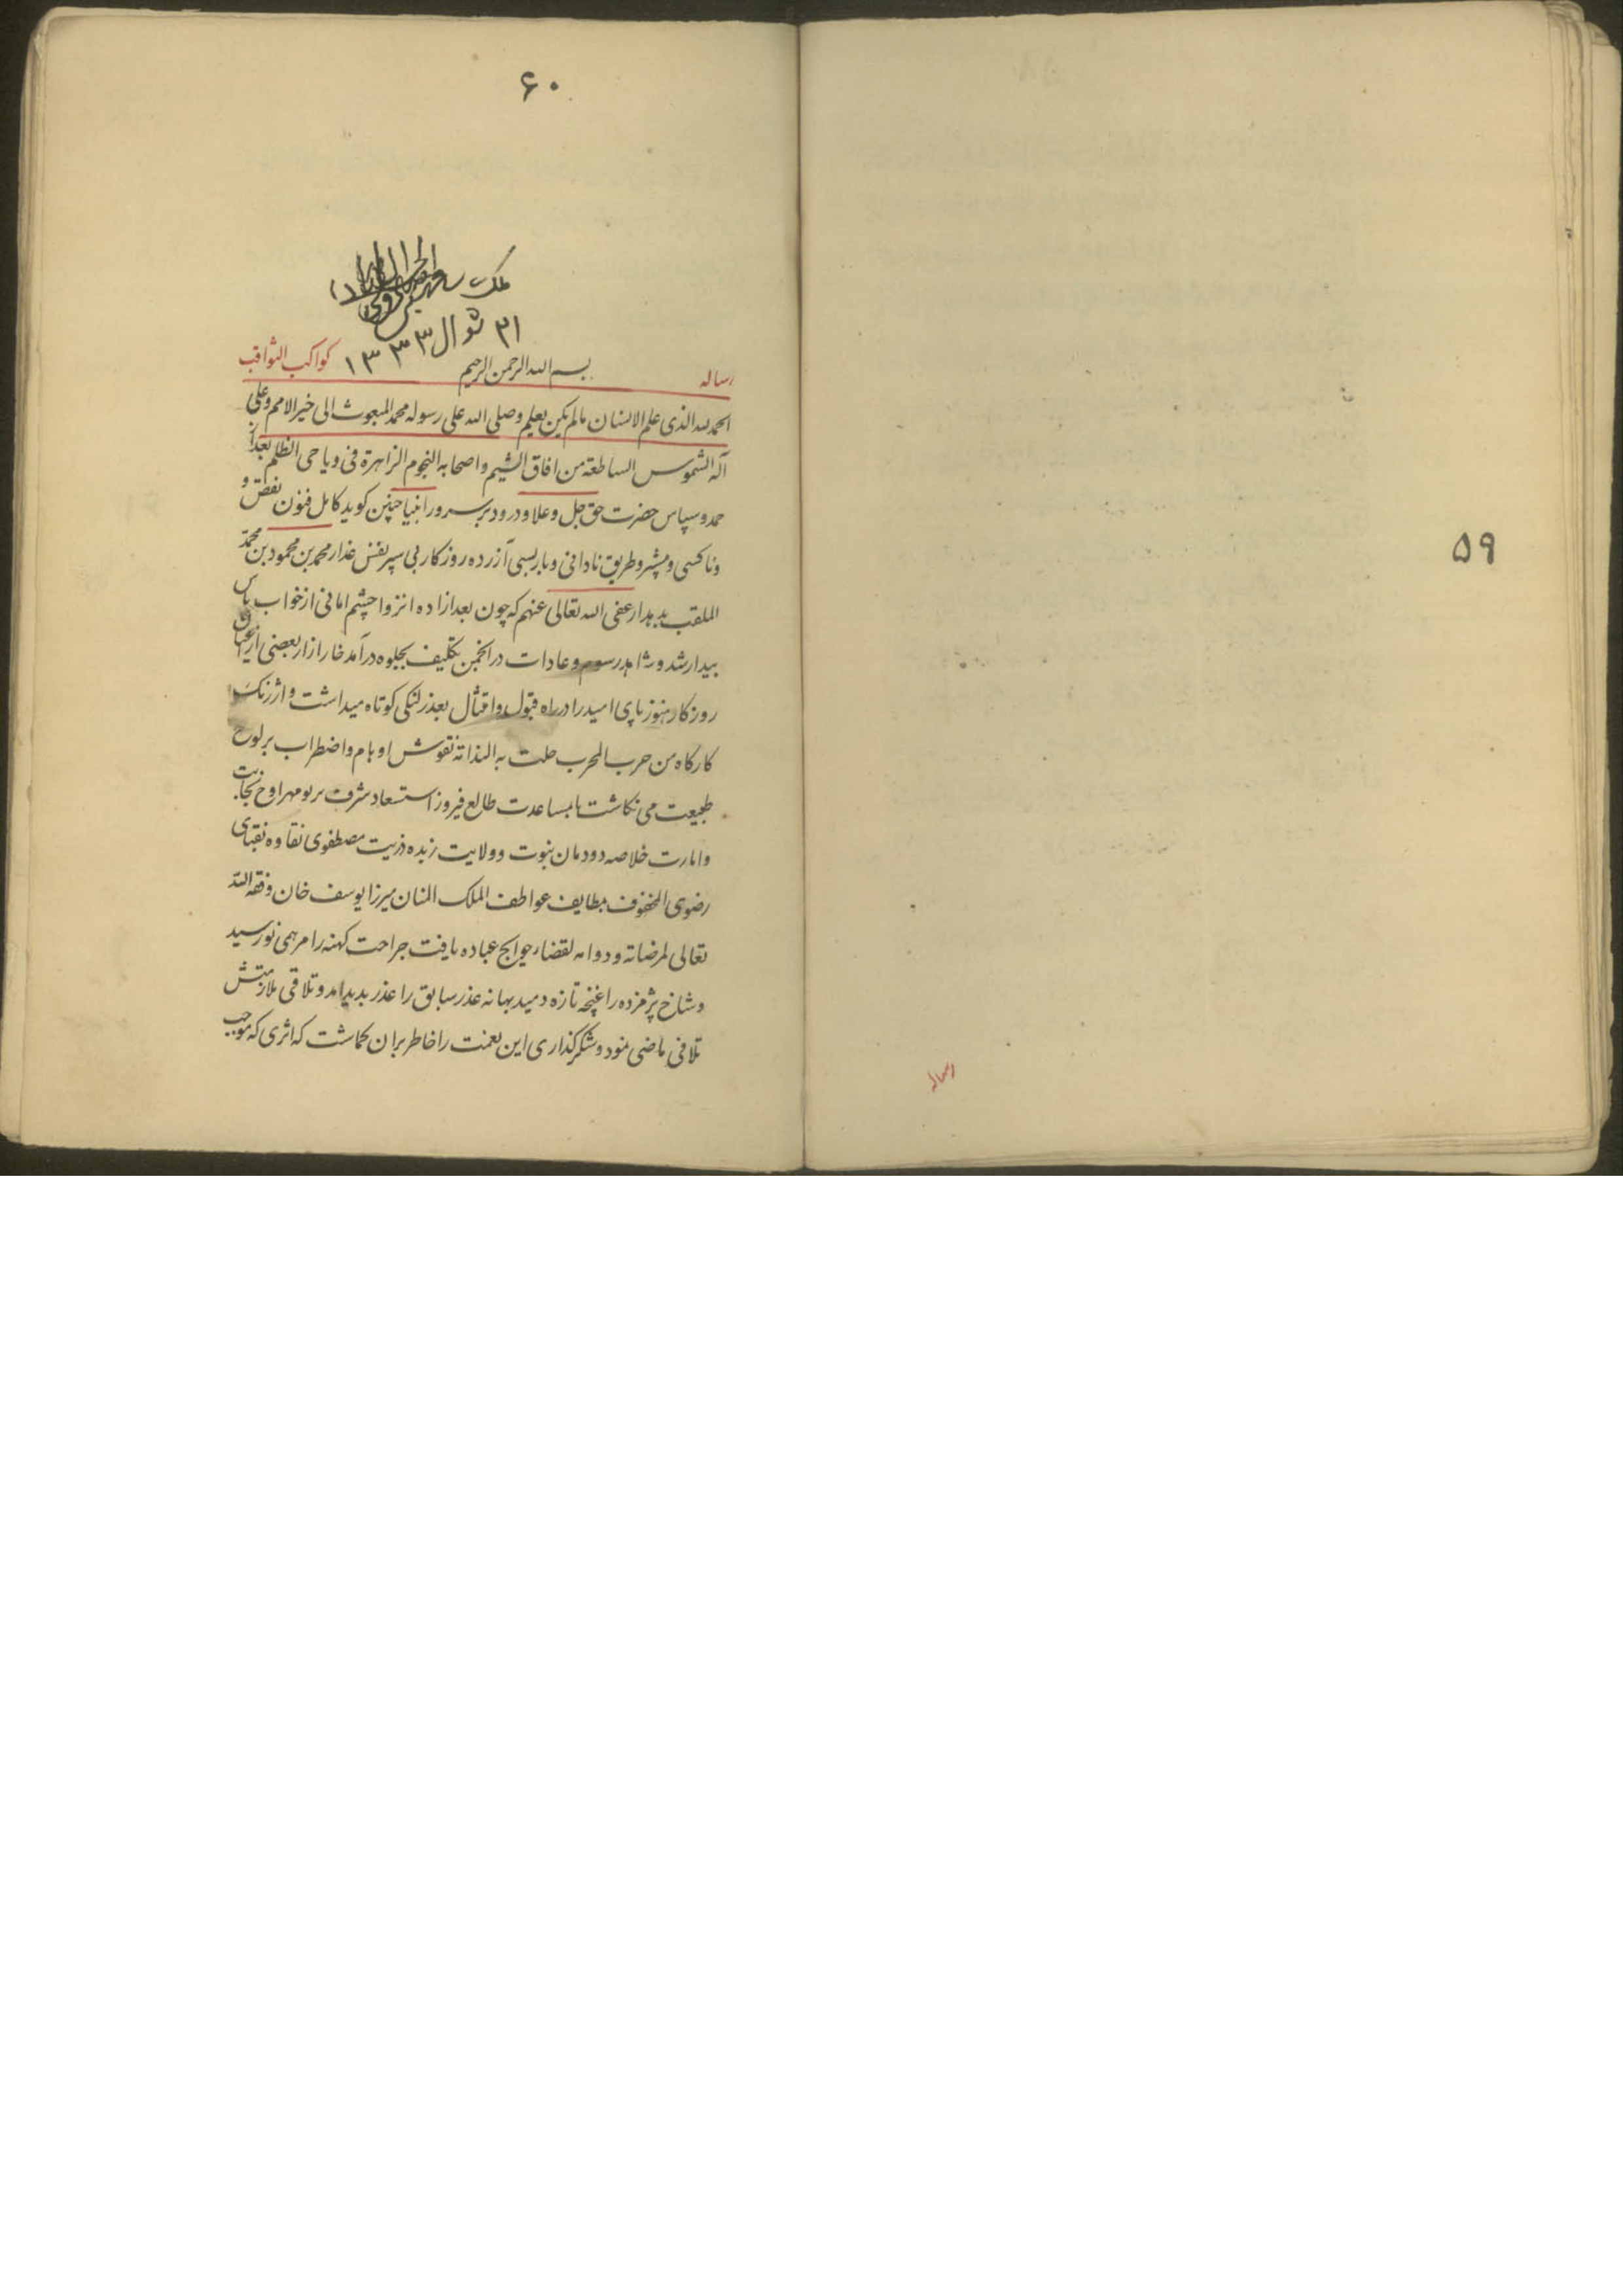 ۵۹
رساله
۶۰
ملک
۲۱ شوال ۱۳۳۳
رساله بسم الله الرحمن الرحیم کواکب الثواقب
الحمد لله الذی علم الانسان مالم یکن یعلم وصلی الله علی رسوله محمد المبعوث الی خیر الامم وعلی
آله الشموس الساطعة من افاق الشیم واصحابه النجوم الزاهرة فی دیاجی الظلم بعد از
حمد وسپاس حضرت حق جل وعلا ودرود بر سرور انبیا چنین کوید کامل فنون نقص و
وناکسی ومشیر وطریق نادانی آزرده روزکار بی سپر نفس غدار محمد بن محمود بن محمد
الملقب بدهدار عفی الله تعالی عنهم که چون بعد از اده انزوا چشم امانی از خواب یاس
بیدار شد وشاهد رسوم وعادات در انجمن تکلیف بجلوه درآمد خار ازار بعضی از
روزکار هنوز پای امید را در راه قبول وامتثال بعذر لنکی کوتاه میداشت وارزنک
کارکاه من جرب المجرب حلت به الندامة نقوش اوهام واضطراب بر لوح
طبیعت می نکاشت تا بمساعدت طالع فیروز استسعاد شرف پرتو مهر اوج نجابت
وامارت خلاصه دودمان نبوت وولایت زبده ذریت مصطفوی نقاوه نقبای
رضوی المحفوف بطایف عواطف الملک المنان میرزا یوسف خان وفقه الله
تعالی لمرضاته ودوامه لقضاء حوایج عباده یافت جراحت کهنه را مرهمی نو رسید
وشاخ پژمرده را غنچه تازه دمید بهانه عذر سابق را عذر بدید امد وتلاقی ملازمتش
تلافی ماضی نمود وشکرگذاری این نعمت را خاطر بران کماشت که اثری که موجب